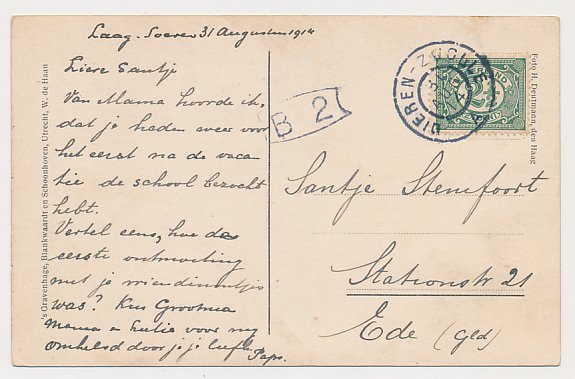 Laag-Soeren 31 Augustus 1914
Lieve Santje
Van Mama hoorde ik,
dat je heden weer voor
het eerst na de vacan
tie de school bezocht
hebt.
Vertel eens, hoe de
eerste ontmoeting
met je vriendinnetjes
was? Kus Grootma
Mama en voor mij
omhelsd door je je liefh.
Paps.
B 2
DIEREN-ZWOLLE
NEDERLAND
2½
CENT
Santje Stemfoort
Stationstr 21
Ede (Gld)
Foto H. Deutmann, den Haag
's Gravenhage, Blankwaardt en Schoonhoven, Utrecht, W. de Haan